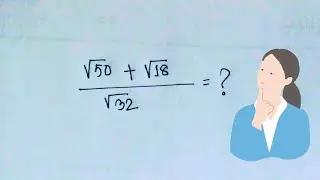 (√50 + √18) / √32 = ?